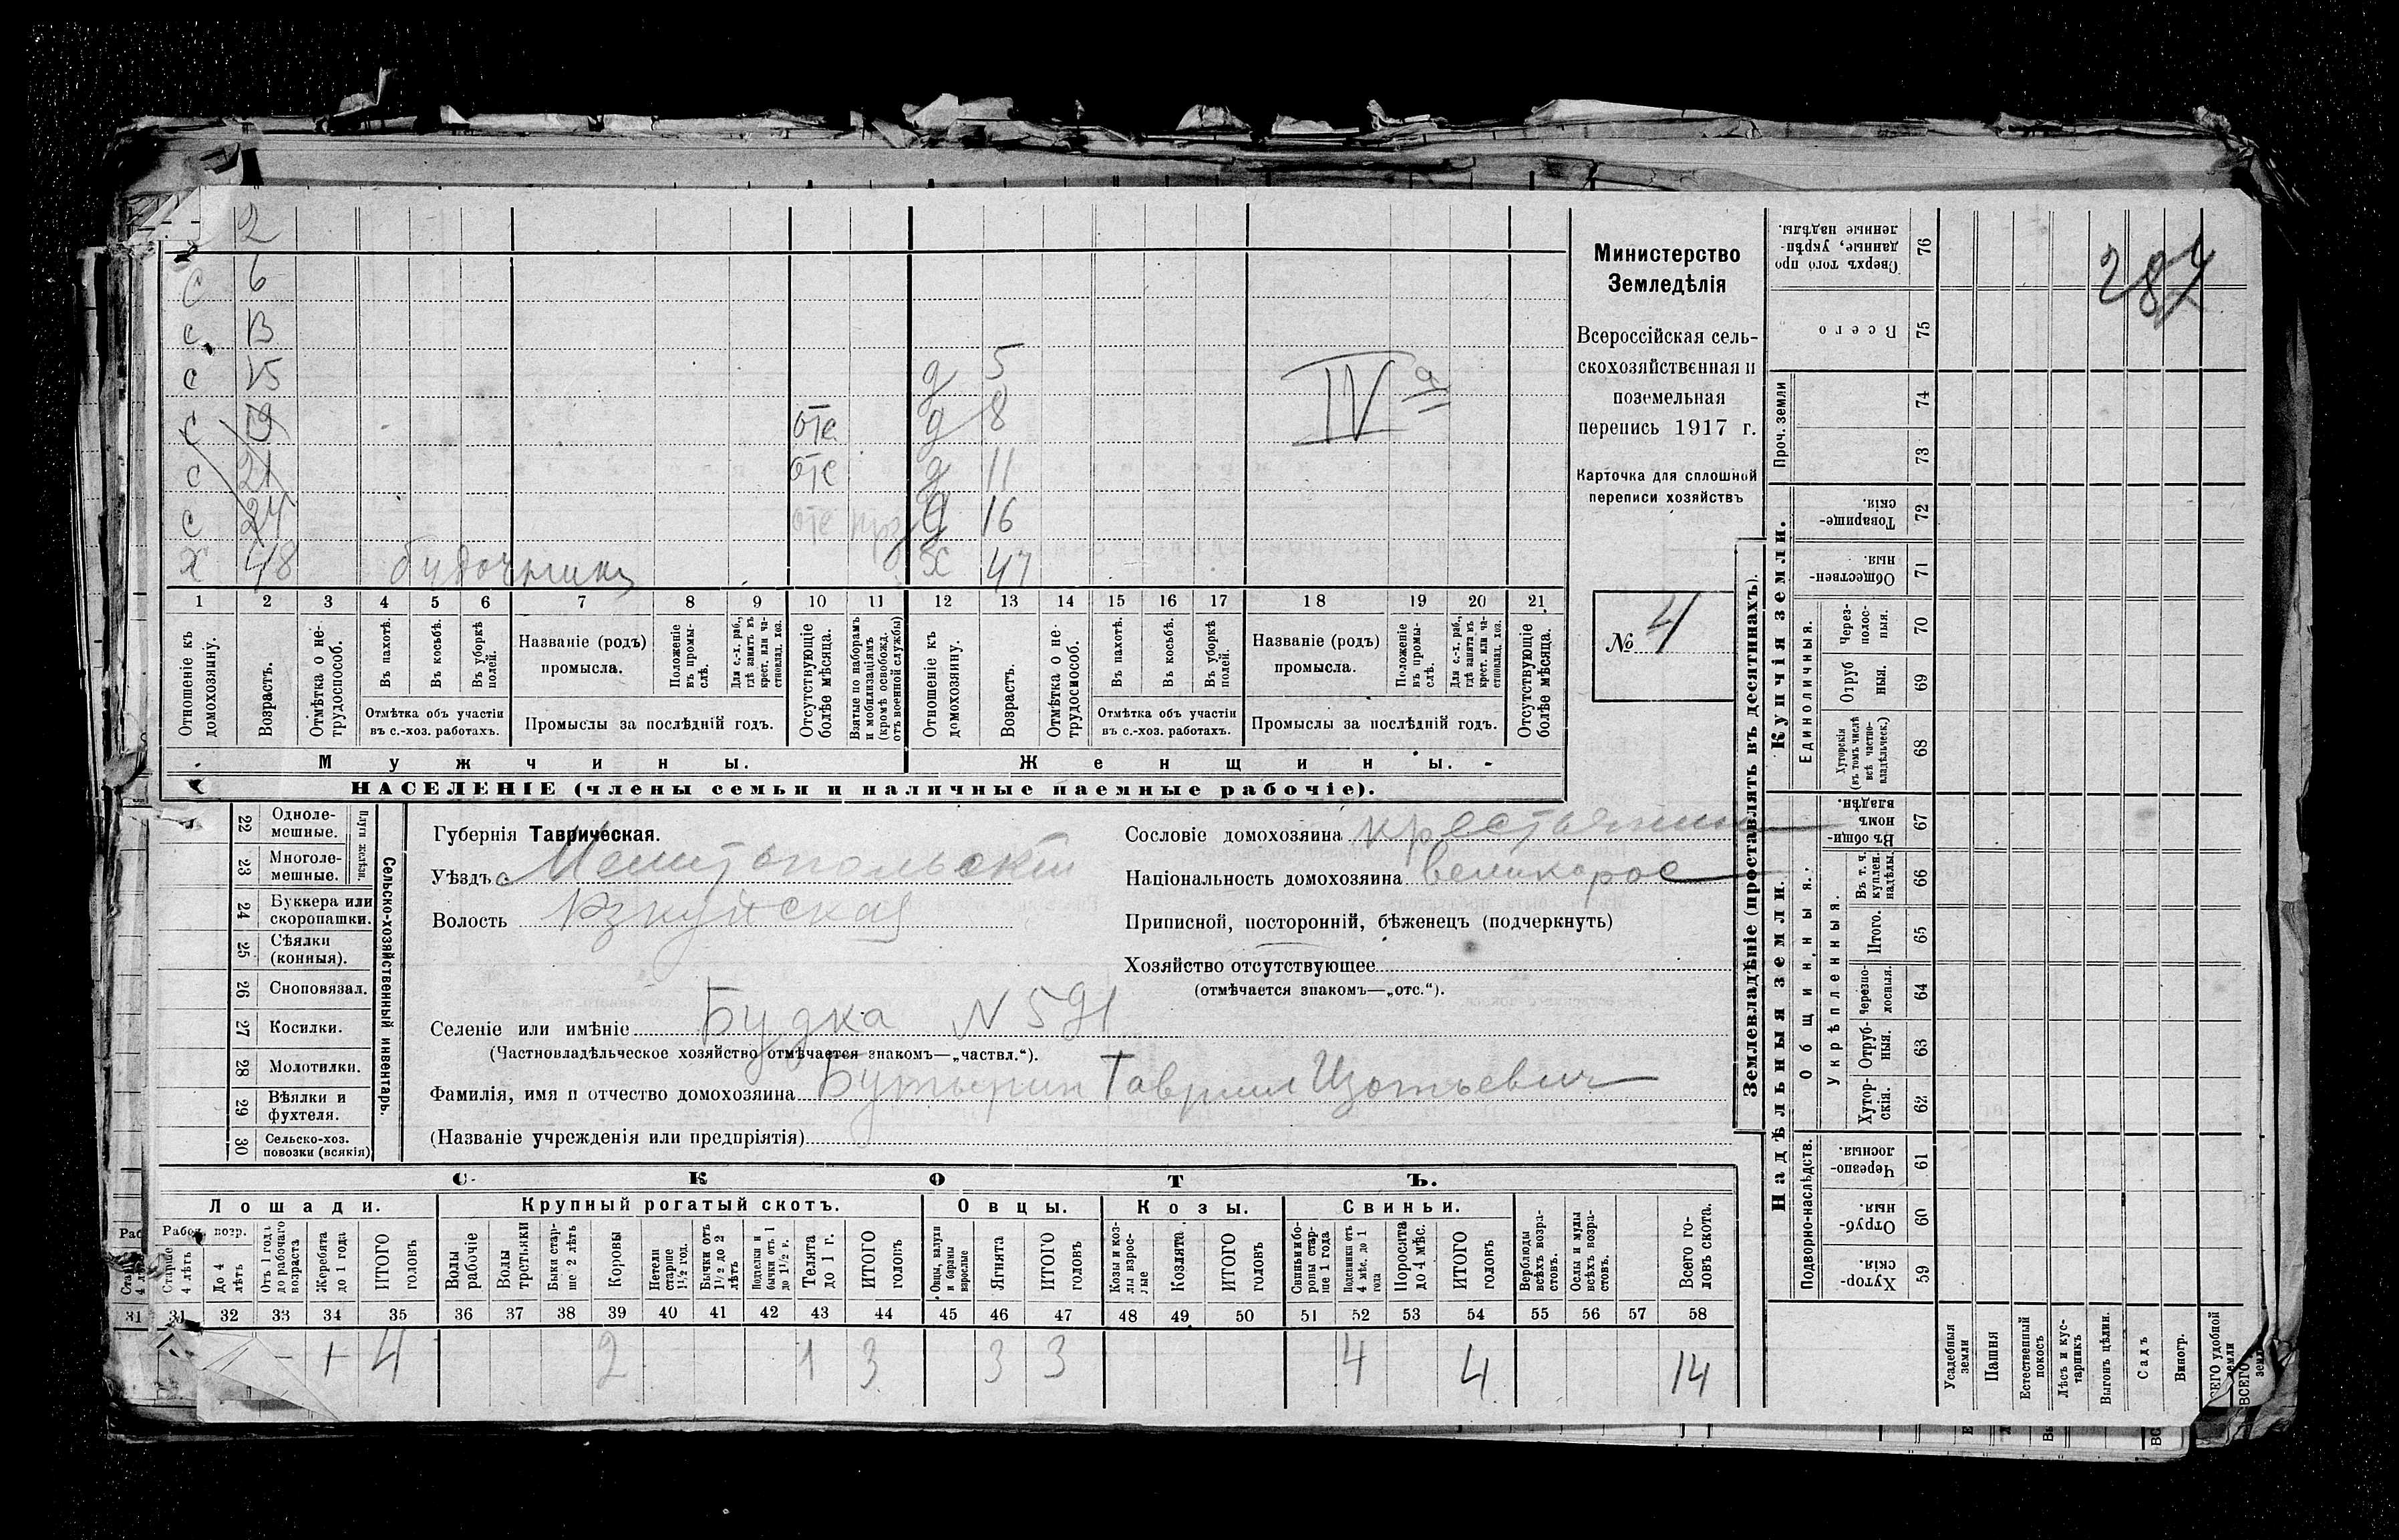 2
с 6
с 13
с 15 д 5
с 19 отс д 8
с 21 отс д 11
с 24 отс д 16
х 48 будочникъ х 47
IV
1 2 3 4 5 6 7 8 9 10 11 12 13 14 15 16 17 18 19 20 21
Отношеніе къ домохозяину.
Возрастъ.
Отмѣтка о не-трудоспособ.
Въ пахотѣ.
Въ косьбѣ.
Въ уборкѣ полей.
Отмѣтка объ участіи
въ с.-хоз. работахъ.
Названіе (родъ)
промысла.
Положеніе въ промы-слѣ.
Для с.-х. раб., гдѣ занятъ въ крест. или ча-стновлад. хоз.
Промыслы за послѣдній годъ.
Отсутствующіе болѣе мѣсяца.
Взятые по наборамъ и мобилизаціямъ (кромѣ освобожд. отъ военной службы)
Отношеніе къ домохозяину.
Возрастъ.
Отмѣтка о не-трудоспособ.
Въ пахотѣ.
Въ косьбѣ.
Въ уборкѣ полей.
Отмѣтка объ участіи
въ с.-хоз. работахъ.
Названіе (родъ)
промысла.
Положеніе въ промы-слѣ.
Для с.-х. раб., гдѣ занятъ въ крест. или ча-стновлад. хоз.
Промыслы за послѣдній годъ.
Отсутствующіе болѣе мѣсяца.
Мужчины. Женщины.
НАСЕЛЕНІЕ (члены семьи и наличные наемные рабочіе).
Министерство
Земледѣлія
Всероссійская сель-
скохозяйственная и
поземельная
перепись 1917 г.
Карточка для сплошной
переписи хозяйствъ
№ 4
22 Однолемешные.
23 Многолемешные.
Плуги желѣзн.
24 Буккера или скоропашки.
25 Сѣялки (конныя).
26 Сноповязал.
27 Косилки.
28 Молотилки.
29 Вѣялки и фухтеля.
30 Сельско-хоз. повозки (всякія)
Сельско-хозяйственный инвентарь.
Губернія Таврическая.
Уѣздъ Мелитопольскій
Волость
Сословіе домохозяина крестьянинъ
Національность домохозяина великорос
Приписной, посторонній, бѣженецъ (подчеркнуть)
Хозяйство отсутствующее
(отмѣчается знакомъ—„отс.“).
Селеніе или имѣніе Будка N 591
(Частновладѣльческое хозяйство отмѣчается знакомъ—„частвл.“).
Фамилія, имя и отчество домохозяина Бутырин Гаврил
(Названіе учрежденія или предпріятія)
СКОТЪ.
Лошади. Крупный рогатый скотъ. Овцы. Козы. Свиньи.
Рабоч. возр.
Старше 4 лѣтъ
До 4 лѣтъ
Отъ 1 года до рабочаго возраста
Жеребята до 1 года
ИТОГО головъ
Волы рабочіе
Волы третьяки
Быки стар-ше 2 лѣтъ
Коровы
Нетели старше 1½ год.
Бычки отъ 1½ до 2 лѣтъ
Подтелки и бычки отъ 1 до 1½ г.
Телята до 1 г.
ИТОГО головъ
Овцы, валухи и бараны взрослые
Ягнята
ИТОГО головъ
Козы и коз-лы взрос-лые
Козлята
ИТОГО головъ
Свиньи и бо-ровы стар-ше 1 года
Подсвинки отъ 4 мѣс. до 1 года
Поросята до 4 мѣс.
ИТОГО головъ
Верблюды всѣхъ возра-стовъ.
Ослы и мулы всѣхъ возра-стовъ.
Всего го-ловъ скота.
31 31 32 33 34 35 36 37 38 39 40 41 42 43 44 45 46 47 48 49 50 51 52 53 54 55 56 57 58
4 2 1 3 3 3 4 4 14
Землевладѣніе (проставлять въ десятинахъ).
Купчія земли.
Надѣльныя земли.
Проч. земли
Единоличныя.
Общинныя.
Укрѣпленныя.
Подворно-наслѣдств.
Сверхъ того про данные, укрѣп-ленные надѣлы. 76
Всего 75
74
73
Товарище-скія. 72
Обществен-ныя 71
Через-полос-ныя. 70
Отруб ныя. 69
Хуторскія (въ томъ числѣ всѣ частно-владѣльческ.) 68
Въ общи-номъ владѣн. 67
Въ т. ч. куплен. надѣлы. 66
Итого. 65
Черезпо-лосныя. 64
Отруб-ныя. 63
Хутор-скія. 62
Черезпо-лосныя. 61
Отруб-ныя. 60
Хутор-скія. 59
Усадебныя земли
Пашня
Естественный покосъ
Лѣсъ и кус-тарникъ
Выгонъ цѣлин.
Садъ
Виногр.
287